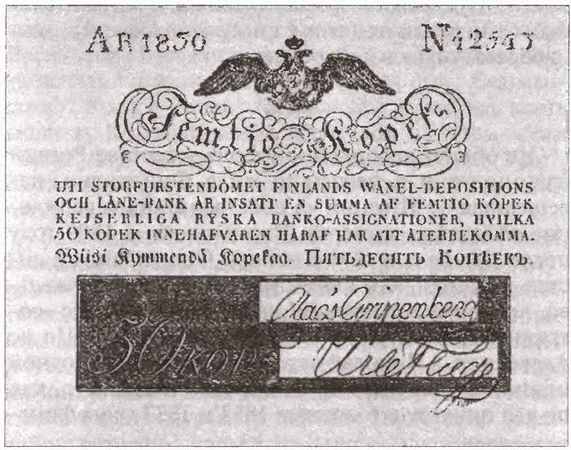 AR 1830 N42543
Femtio Kopek
UTI STORFURSTENDÖMET FINLANDS WÄXEL-DEPOSITIONS
OCH LÅNE-BANK ÄR INSATT EN SUMMA AF FEMTIO KOPEK
KEJSERLIGA RYSKA BANKO-ASSIGNATIONER, HVILKA
50 KOPEK INNEHAFVAREN HÄRAF HAR ATT ÅTERBEKOMMA.
Wiisi Kymmendä Kopekaa. ПЯТЬДЕСЯТЬ КОПѢЕКЪ.
Gripenberg
50 KOP.